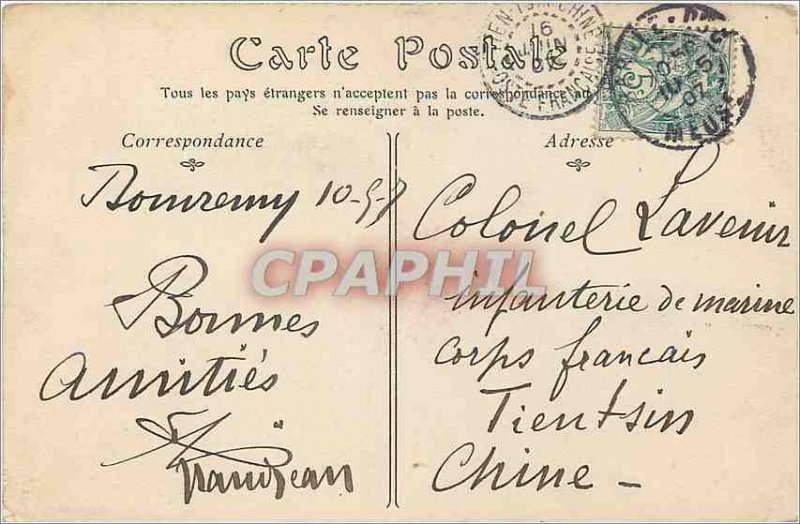 Carte Postale
Tous les pays étrangers n'acceptent pas la correspondance au
Se renseigner à la poste.
Correspondance
Adresse
Domremy 10-5-7
Bonnes
Amitiés
Grandjean
Colonel Lavenir
infanterie de marine
corps francais
Tientsin
Chine
TIEN-TSIN CHINE
16
JUIN
POSTE FRANCAISE
10
5
07
MEUSE
CPAPHIL